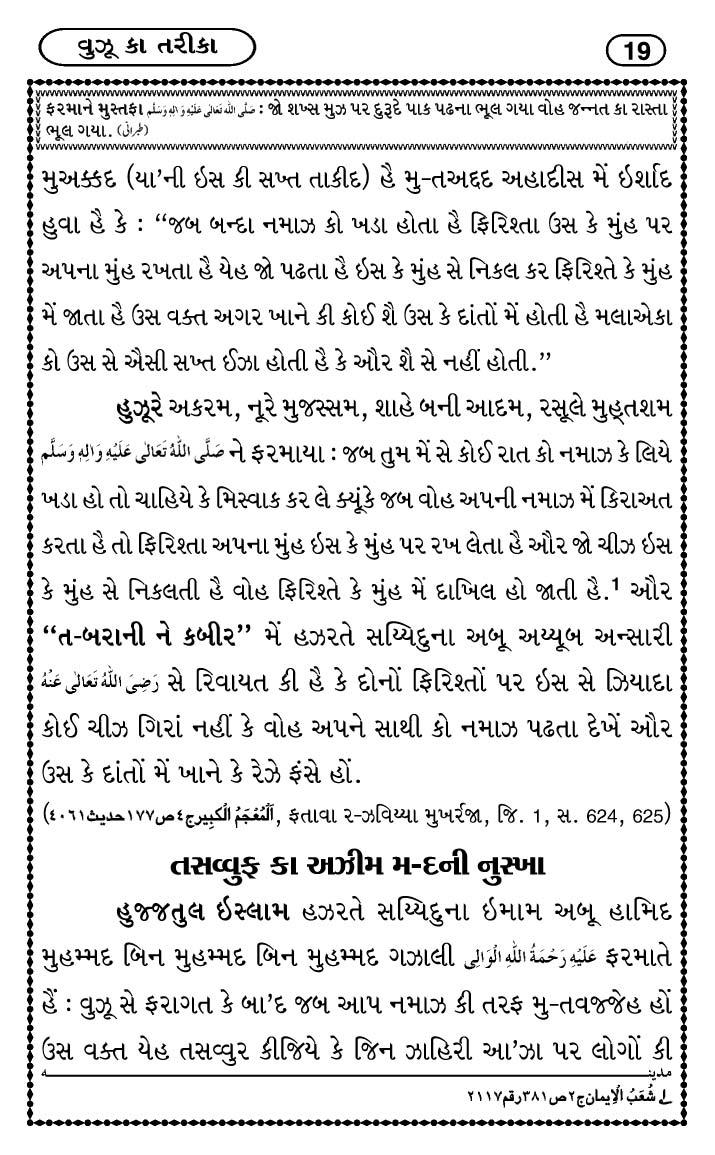 વુઝૂ કા તરીકા
19
ફરમાને મુસ્તફા صَلَّى اللّٰهُ تَعَالٰى عَلَيْهِ وَاٰلِهٖ وَسَلَّم : જો શખ્સ મુઝ પર દુરૂદે પાક પઢના ભૂલ ગયા વોહ જન્નત કા રાસ્તા
ભૂલ ગયા. (طبرانی)
મુઅક્કદ (યા'ની ઇસ કી સખ્ત તાકીદ) હૈ મુ-તઅદ્દદ અહાદીસ મેં ઇર્શાદ
હુવા હૈ કે : “જબ બન્દા નમાઝ કો ખડા હોતા હૈ ફિરિશ્તા ઉસ કે મુંહ પર
અપના મુંહ રખતા હૈ યેહ જો પઢતા હૈ ઇસ કે મુંહ સે નિકલ કર ફિરિશ્તે કે મુંહ
મેં જાતા હૈ ઉસ વક્ત અગર ખાને કી કોઈ શૈ ઉસ કે દાંતોં મેં હોતી હૈ મલાએકા
કો ઉસ સે ઐસી સખ્ત ઈઝા હોતી હૈ કે ઔર શૈ સે નહીં હોતી.”
હુઝૂરે અકરમ, નૂરે મુજસ્સમ, શાહે બની આદમ, રસૂલે મુહ્તશમ
صَلَّى اللّٰهُ تَعَالٰى عَلَيْهِ وَاٰلِهٖ وَسَلَّم ને ફરમાયા : જબ તુમ મેં સે કોઈ રાત કો નમાઝ કે લિયે
ખડા હો તો ચાહિયે કે મિસ્વાક કર લે ક્યૂંકે જબ વોહ અપની નમાઝ મેં કિરાઅત
કરતા હૈ તો ફિરિશ્તા અપના મુંહ ઇસ કે મુંહ પર રખ લેતા હૈ ઔર જો ચીઝ ઇસ
કે મુંહ સે નિકલતી હૈ વોહ ફિરિશ્તે કે મુંહ મેં દાખિલ હો જાતી હૈ.1 ઔર
“ત-બરાની ને કબીર” મેં હઝરતે સય્યિદુના અબૂ અય્યૂબ અન્સારી
رَضِىَ اللّٰهُ تَعَالٰى عَنْهُ સે રિવાયત કી હૈ કે દોનોં ફિરિશ્તોં પર ઇસ સે ઝિયાદા
કોઈ ચીઝ ગિરાં નહીં કે વોહ અપને સાથી કો નમાઝ પઢતા દેખેં ઔર
ઉસ કે દાંતોં મેં ખાને કે રેઝે ફંસે હોં.
(اَلْمُعْجَمُ الْكبِير ج٤ ص١٧٧ حديث٤٠٦١, ફતાવા ર-ઝવિય્યા મુખર્રજા, જિ. 1, સ. 624, 625)
તસવ્વુફ કા અઝીમ મ-દની નુસ્ખા
હુજ્જતુલ ઇસ્લામ હઝરતે સય્યિદુના ઇમામ અબૂ હામિદ
મુહમ્મદ બિન મુહમ્મદ બિન મુહમ્મદ ગઝાલી عَلَيْهِ رَحْمَةُ اللّٰهِ الْوَالِى ફરમાતે
હૈં : વુઝૂ સે ફરાગત કે બા'દ જબ આપ નમાઝ કી તરફ મુ-તવજ્જેહ હોં
ઉસ વક્ત યેહ તસવ્વુર કીજિયે કે જિન ઝાહિરી આ'ઝા પર લોગોં કી
مدینه
١ شُعَبُ الْاِيمان ج٢ ص٣٨١ رقم ٢١١٧